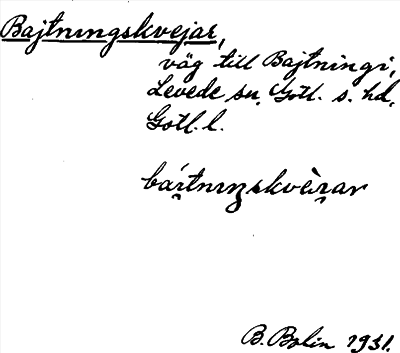 Bajtningskvejar,
väg till Bajtningi,
Levede sn, Gotl. s. hd,
Gotl. l.
B. Bolin 1931.